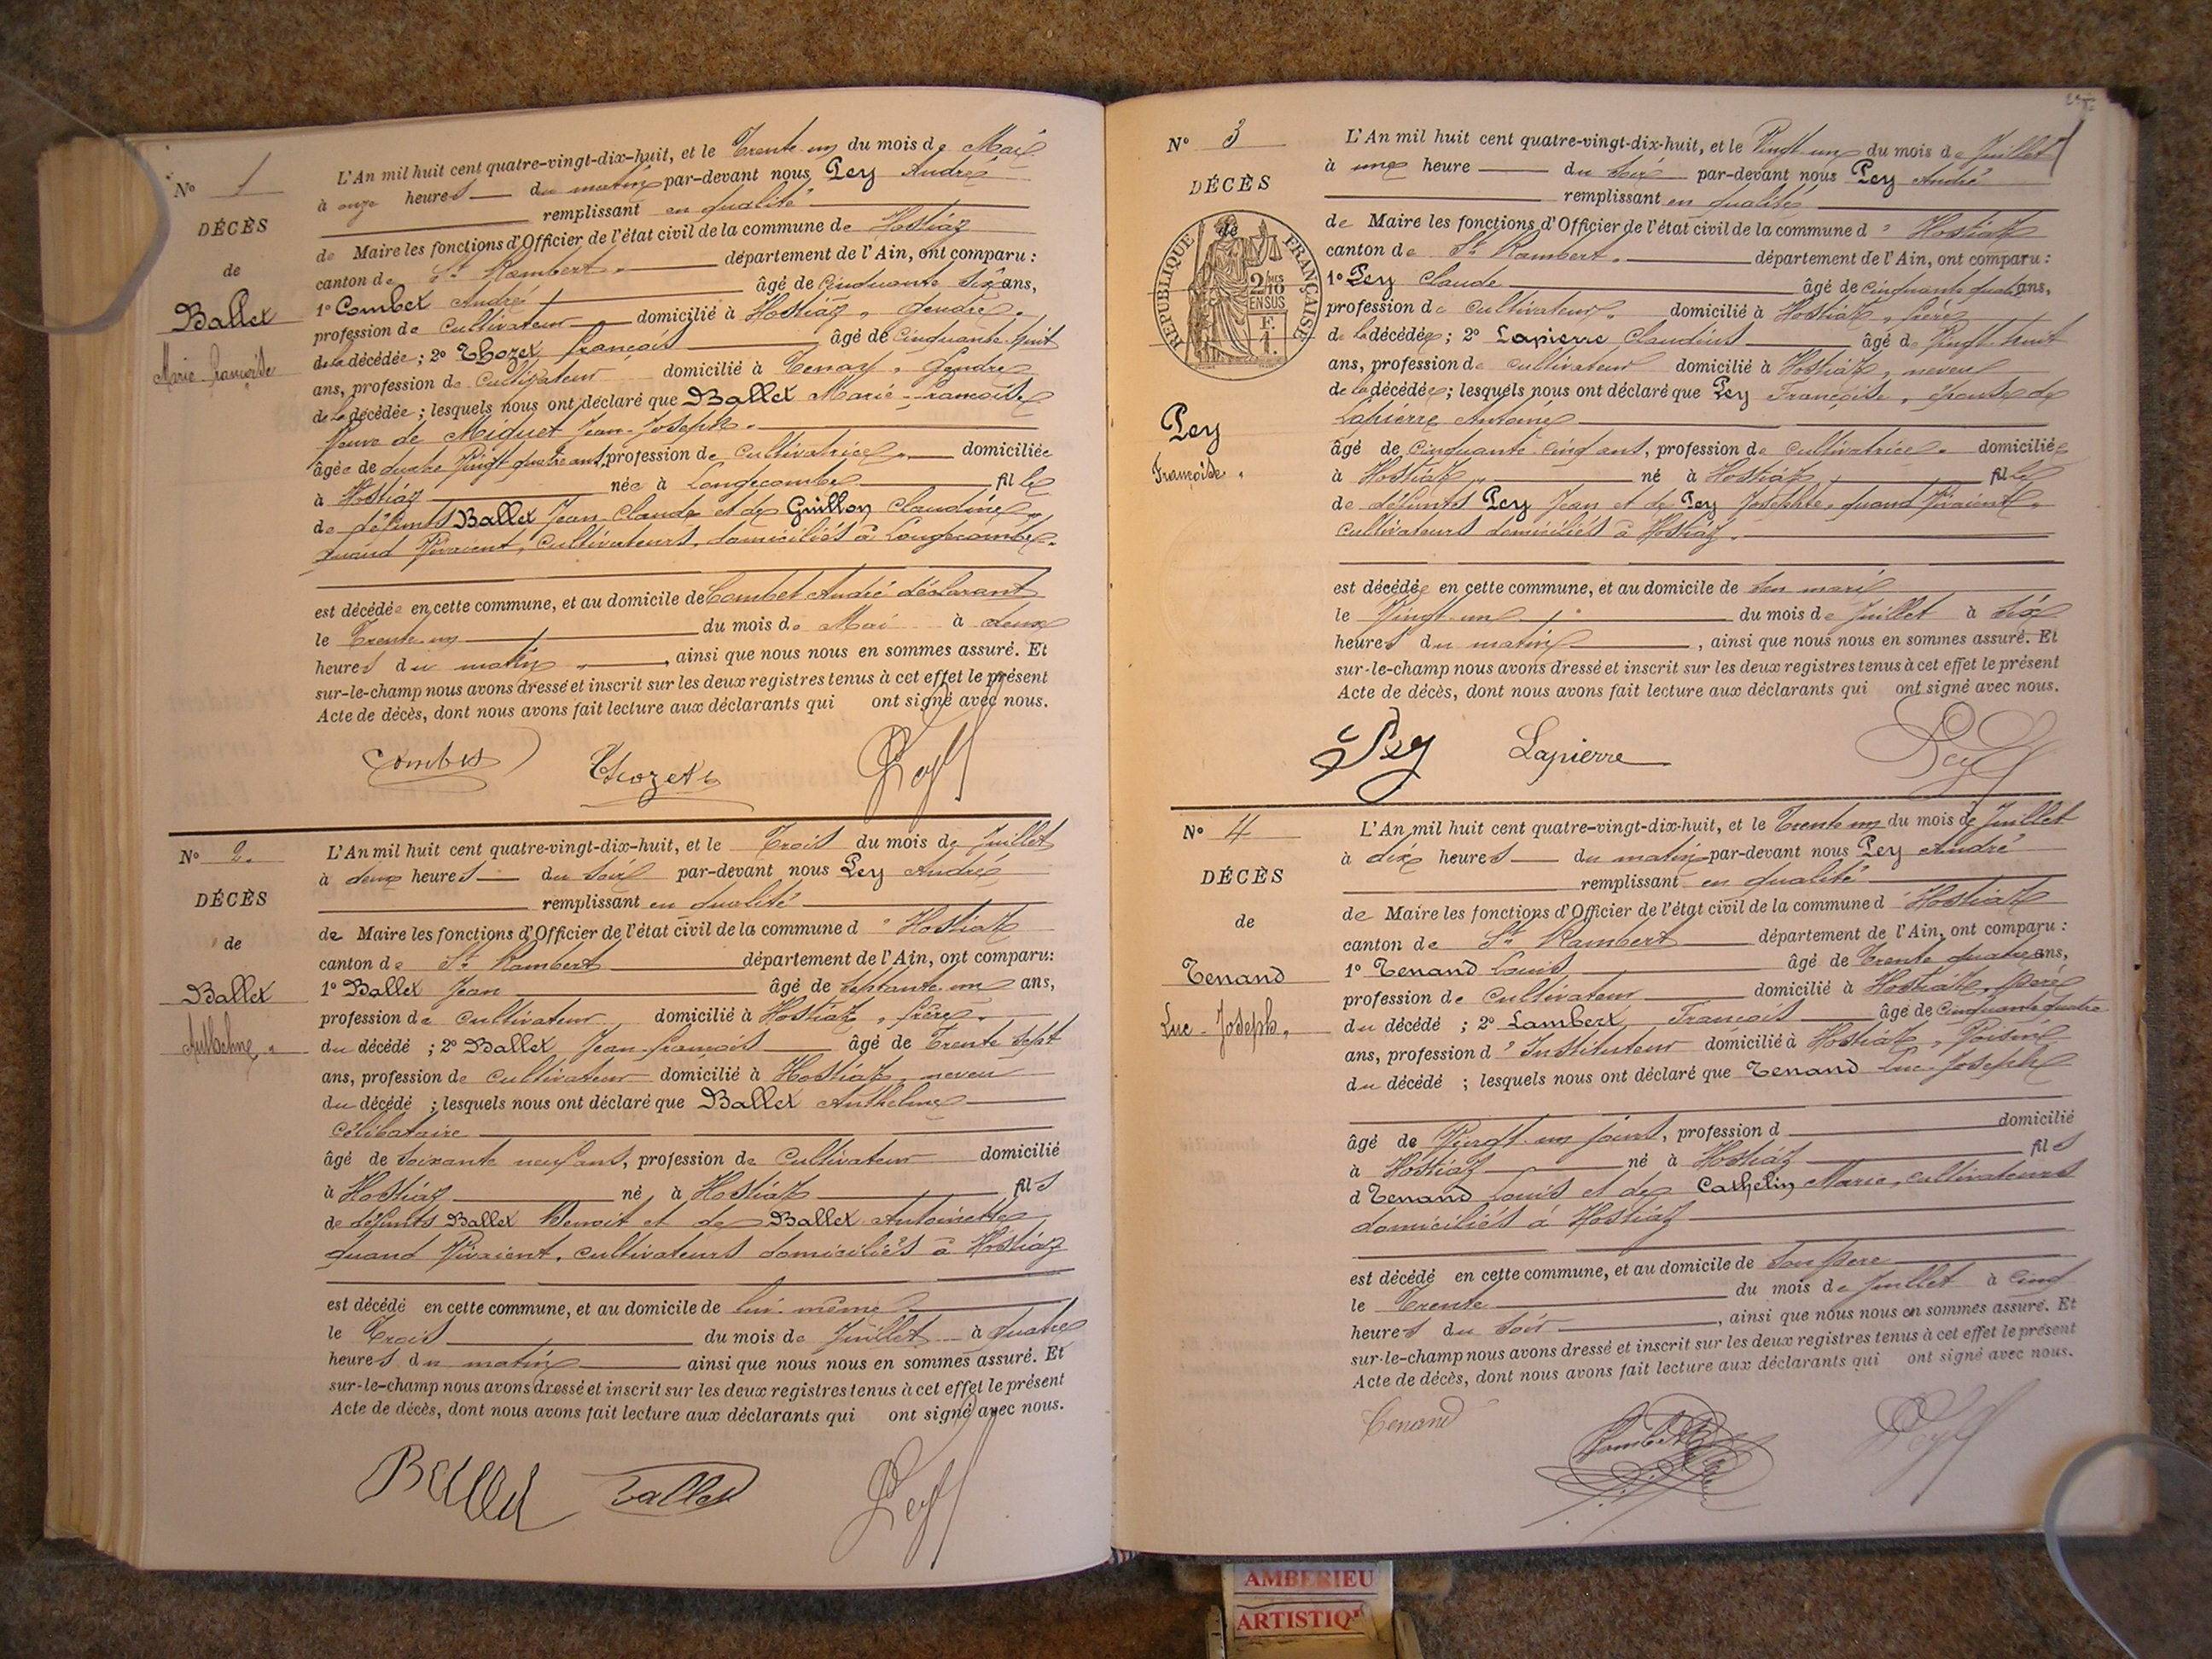 N° 1
DÉCÈS
de
Ballet
Marie françoise
L'An mil huit cent quatre-vingt-dix-huit, et le Trente un du mois de Mai
à onze heures du matin par-devant nous Pey André
remplissant en qualité
de Maire les fonctions d'Officier de l'état civil de la commune de Hostiaz
canton de St Rambert département de l'Ain, ont comparu :
1° Combet André âgé de Cinquante six ans,
profession de Cultivateur domicilié à Hostiaz, Gendre
de la décédée ; 2° Thozet françois âgé de Cinquante huit
ans, profession de Cultivateur domicilié à Tenay, Gendre
de la décédée ; lesquels nous ont déclaré que Ballet Marie françoise
Veuve de Miguet Jean-Joseph.
âgée de quatre Vingt quatre ans, profession de Cultivatrice domiciliée
à Hostiaz née à Longecombe fille
de défunts Ballet Jean Claude et de Guillon Claudine
quand Vivaient, Cultivateurs, domiciliés à Longecombe.
est décédée en cette commune, et au domicile de Combet André déclarant
le Trente un du mois de Mai à deux
heures du matin, ainsi que nous nous en sommes assuré. Et
sur-le-champ nous avons dressé et inscrit sur les deux registres tenus à cet effet le présent
Acte de décès, dont nous avons fait lecture aux déclarants qui ont signé avec nous.
Combet Thozet Pey
N° 2.
DÉCÈS
de
Ballet
Anthelme
L'An mil huit cent quatre-vingt-dix-huit, et le Trois du mois de Juillet
à deux heures du soir par-devant nous Pey André
remplissant en qualité
de Maire les fonctions d'Officier de l'état civil de la commune d'Hostiaz
canton de St Rambert département de l'Ain, ont comparu :
1° Ballet Jean âgé de Septante un ans,
profession de Cultivateur domicilié à Hostiaz, frère
du décédé ; 2° Ballet Jean françois âgé de Trente sept
ans, profession de Cultivateur domicilié à Hostiaz, neveu
du décédé ; lesquels nous ont déclaré que Ballet Anthelme
Célibataire
âgé de soixante neuf ans, profession de Cultivateur domicilié
à Hostiaz né à Hostiaz fils
de défunts Ballet Benoit et de Ballet Antoinette
quand Vivaient, cultivateurs domiciliés à Hostiaz
est décédé en cette commune, et au domicile de lui-même
le Trois du mois de Juillet à quatre
heures du matin ainsi que nous nous en sommes assuré. Et
sur-le-champ nous avons dressé et inscrit sur les deux registres tenus à cet effet le présent
Acte de décès, dont nous avons fait lecture aux déclarants qui ont signé avec nous.
Ballet Ballet Pey
N° 3
DÉCÈS
de
RÉPUBLIQUE FRANÇAISE
2/10 EN SUS
Pey
Françoise
L'An mil huit cent quatre-vingt-dix-huit, et le Vingt un du mois de Juillet
à une heure du soir par-devant nous Pey André
remplissant en qualité
de Maire les fonctions d'Officier de l'état civil de la commune d'Hostiaz
canton de St Rambert département de l'Ain, ont comparu :
1° Pey Claude âgé de Cinquante quatre ans,
profession de Cultivateur domicilié à Hostiaz, frère
de la décédée ; 2° Lapierre Claudius âgé de Vingt huit
ans, profession de cultivateur domicilié à Hostiaz, neveu
de la décédée ; lesquels nous ont déclaré que Pey Françoise, épouse de
Lapierre Antoine
âgé de Cinquante cinq ans, profession de Cultivatrice domiciliée
à Hostiaz né à Hostiaz fille
de défunts Pey Jean et de Pey Josephte, quand Vivaient,
cultivateurs domiciliés à Hostiaz.
est décédée en cette commune, et au domicile de son mari
le Vingt un du mois de Juillet à six
heures du matin, ainsi que nous nous en sommes assuré. Et
sur-le-champ nous avons dressé et inscrit sur les deux registres tenus à cet effet le présent
Acte de décès, dont nous avons fait lecture aux déclarants qui ont signé avec nous.
C Pey Lapierre Pey
N° 4
DÉCÈS
de
Tenand
Luc-Joseph.
L'An mil huit cent quatre-vingt-dix-huit, et le Trente un du mois de Juillet
à dix heures du matin par-devant nous Pey André
remplissant en qualité
de Maire les fonctions d'Officier de l'état civil de la commune d'Hostiaz
canton de St Rambert département de l'Ain, ont comparu :
1° Tenand Louis âgé de Trente quatre ans,
profession de Cultivateur domicilié à Hostiaz, père
du décédé ; 2° Lambert François âgé de Cinquante quatre
ans, profession d'Instituteur domicilié à Hostiaz, Voisin
du décédé ; lesquels nous ont déclaré que Tenand Luc-Joseph
âgé de Vingt un jours, profession d domicilié
à Hostiaz né à Hostiaz fils
d Tenand Louis et de Cathelin Marie, cultivateurs
domiciliés à Hostiaz
est décédé en cette commune, et au domicile de son père
le Trente du mois de Juillet à cinq
heures du soir, ainsi que nous nous en sommes assuré. Et
sur-le-champ nous avons dressé et inscrit sur les deux registres tenus à cet effet le présent
Acte de décès, dont nous avons fait lecture aux déclarants qui ont signé avec nous.
Tenand Lambert Pey
AMBERIEU
ARTISTIQ